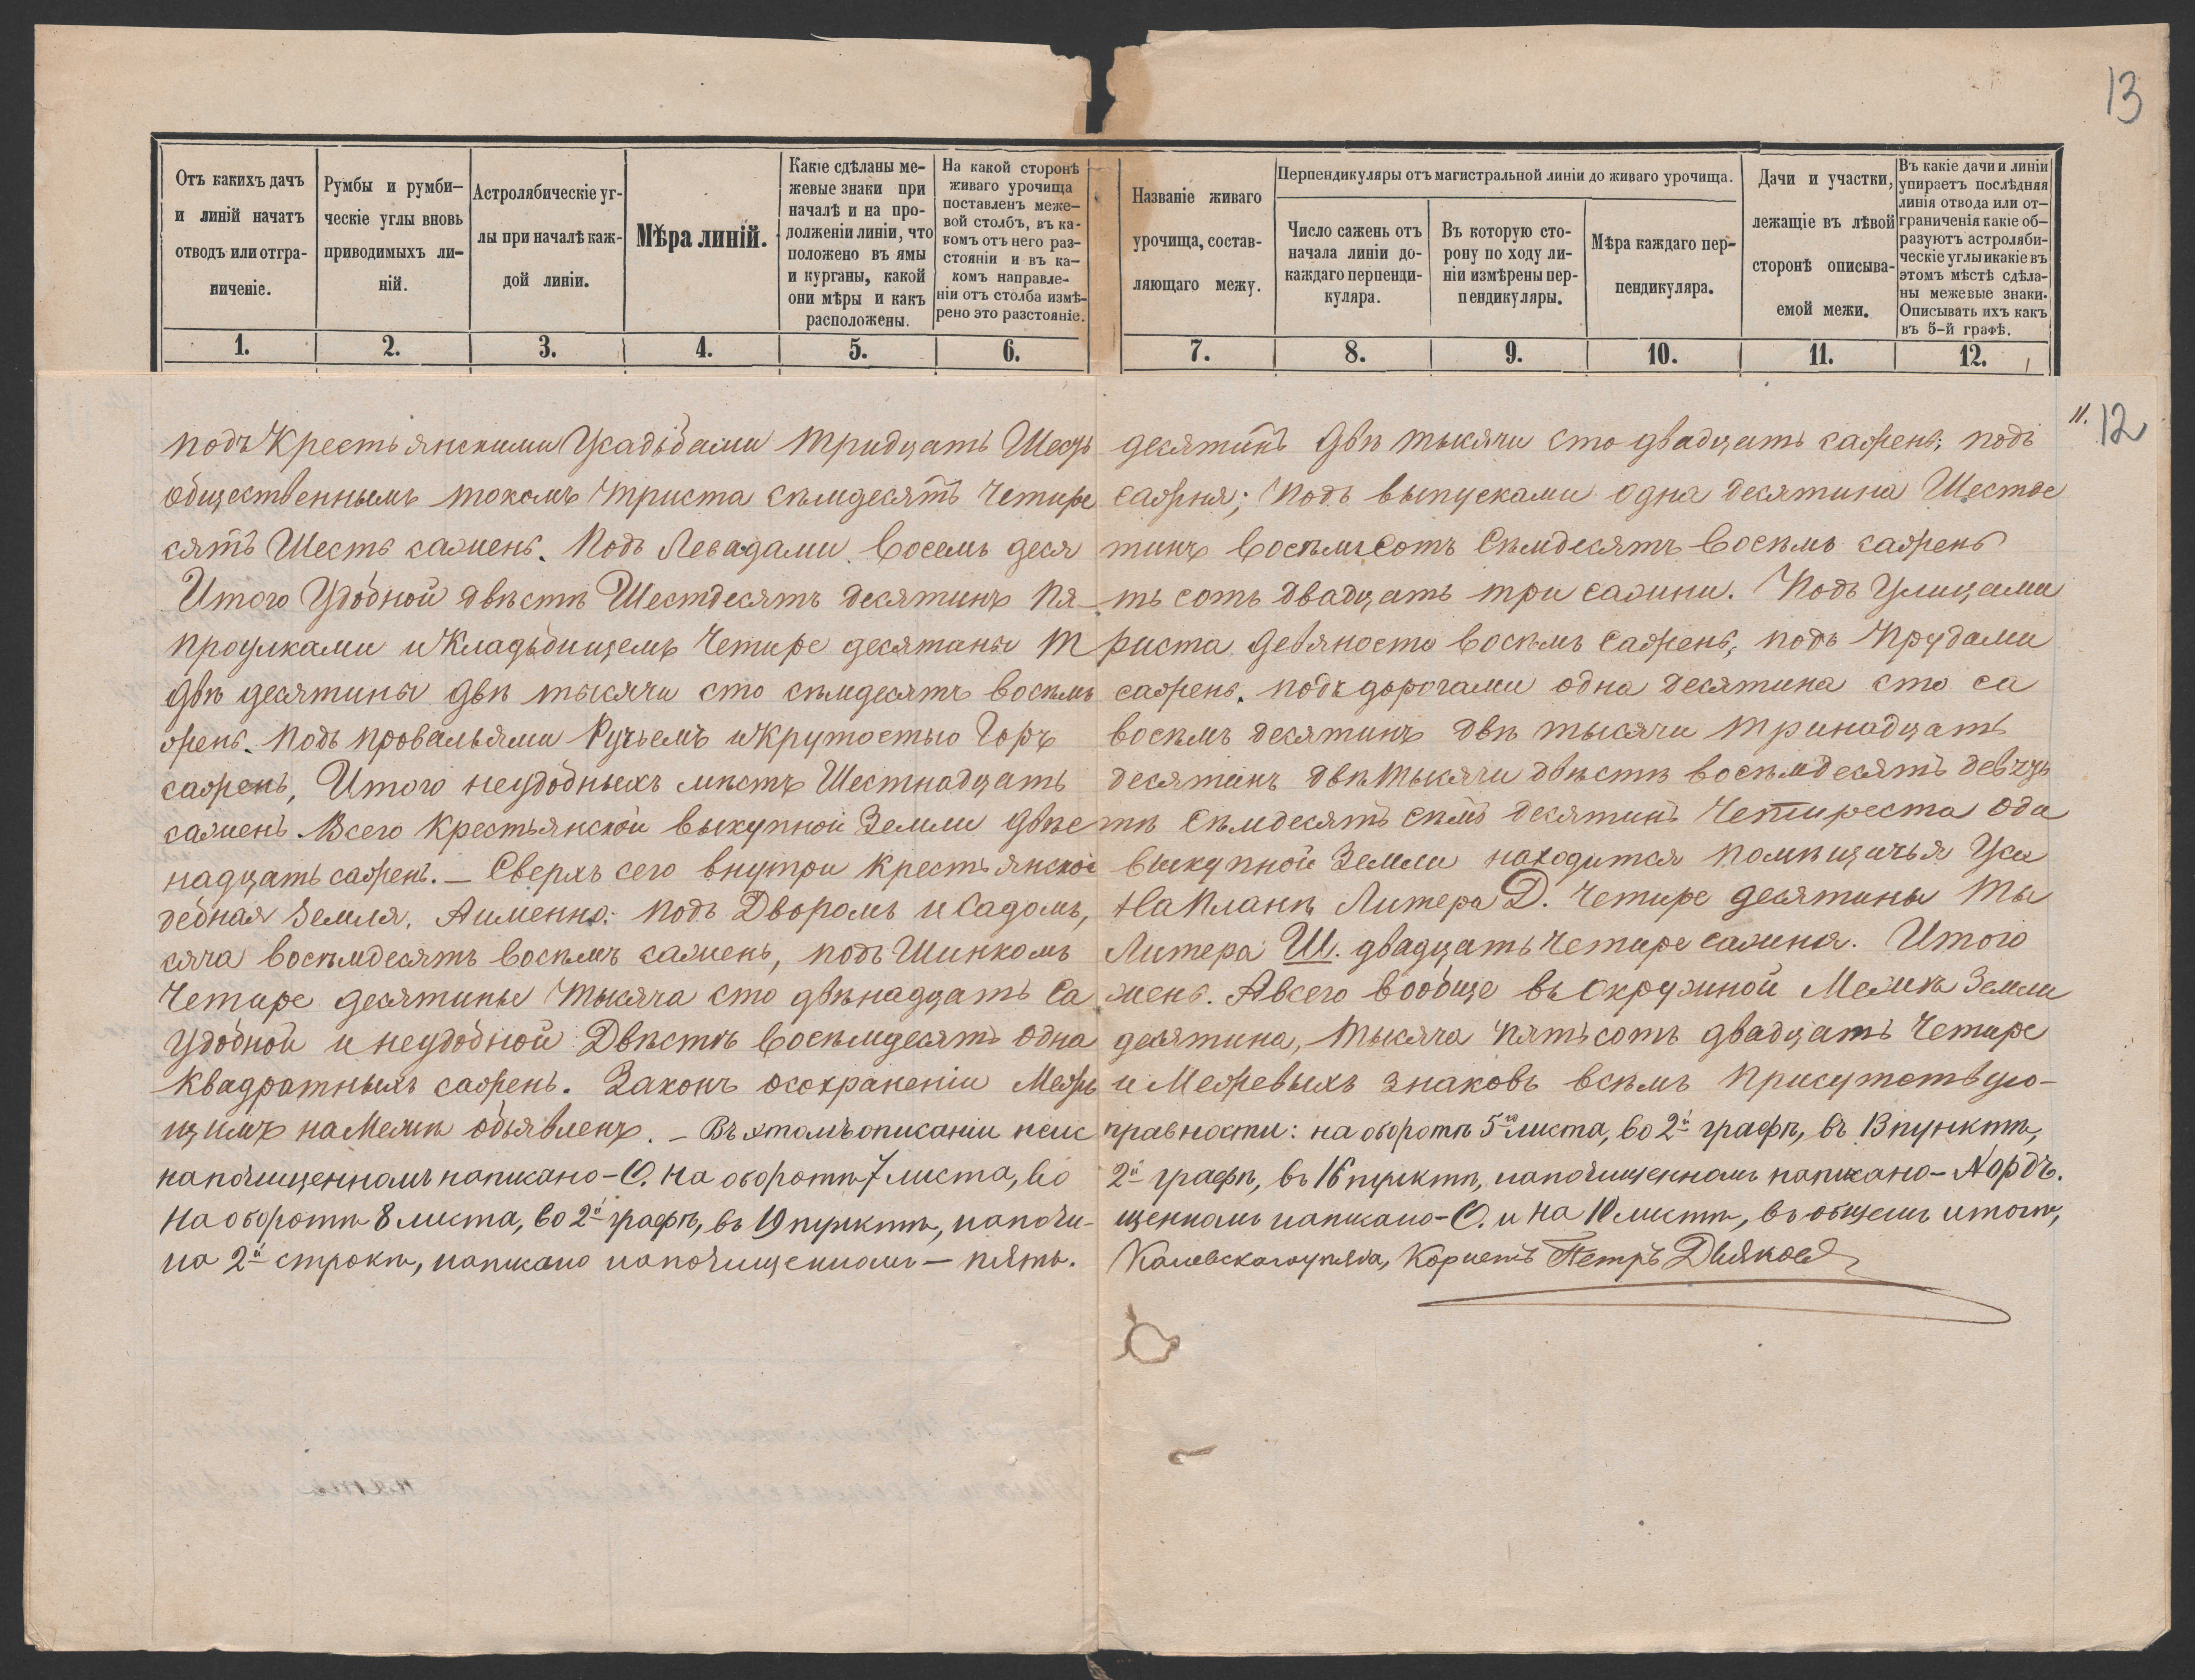 13
Отъ какихъ дачъ и линій начатъ отводъ или отграниченіе.
Румбы и румбическіе углы вновь приводимыхъ линій.
Астролябическіе углы при началѣ каждой линіи.
Мѣра линій.
Какіе сдѣланы межевые знаки при началѣ и на продолженіи линіи, что положено въ ямы и курганы, какой они мѣры и какъ расположены.
На какой сторонѣ живаго урочища поставленъ межевой столбъ, въ какомъ отъ него разстояніи и въ какомъ направленіи отъ столба измѣрено это разстояніе.
Названіе живаго урочища, составляющаго межу.
Перпендикуляры отъ магистральной линіи до живаго урочища.
Число сажень отъ начала линіи до каждаго перпендикуляра.
Въ которую сторону по ходу линіи измѣрены перпендикуляры.
Мѣра каждаго перпендикуляра.
Дачи и участки, лежащіе въ лѣвой сторонѣ описываемой межи.
Въ какіе дачи и линіи упираетъ послѣдняя линія отвода или отграниченія какіе образуютъ астролябическіе углы икакіе въ этомъ мѣстѣ сдѣланы межевые знаки. Описывать ихъ какъ въ 5-й графѣ.
1. 2. 3. 4. 5. 6. 7. 8. 9. 10. 11. 12.
11. 12
подъ Крестьянскими Усадьбами тридцать Шесть десятинъ двѣ тысячи сто двадцать сажень; подъ
общественнымъ токомъ триста сѣмдесятъ четире сажня; Подъ выпусками одна десятина Шестде
сятъ Шесть сажень. Подъ Левадами восемь деся тинъ восѣмьсотъ сѣмдесятъ восѣмь сажень
Итого Удобной двѣстѣ Шестдесятъ десятинъ пя-ть сотъ двадцать три сажини. Подъ Улицами
проулками и Кладьбищемъ Четире десятины триста девяносто восѣмь сажень, подъ Прудами
двѣ десятины двѣ тысячи сто сѣмдесятъ восѣмь сажень. подъ дорогами одна десятина сто са
жень. Подъ провальями Ручьемъ и Крутостью Горъ восѣмь десятинъ двѣ тысячи тринадцать
сажень, Итого неудобныхъ мѣстъ Шестнадцать десятинъ двѣ тысячи двѣстѣ восѣмдесятъ девять
сажень. Всего Крестьянской выкупной Земли двѣстѣ сѣмдесятъ сѣмъ десятинъ Четиреста оди
надцать сажень. — Сверхъ сего внутри Крестьянской выкупной Земли находится помѣщичья Уса
дебная Земля, Аименно: подъ Дворомъ и Садомъ, На Планѣ Литера Д. Четире десятины ты
сяча восѣмдесятъ восѣмъ сажень, подъ Шинкомъ Литера Ш. двадцать Четире сажиня. Итого
Четире десятины тысяча сто двѣнадцать са жень. Авсего вообще въ окружной Межѣ Земли
Удобной и неудобной Двѣстѣ восѣмдесятъ одна десятина, тысяча пятьсотъ двадцать Четире
Квадратныхъ сажень. Законъ осохраненіи Межъ и Межевыхъ знаковъ всѣмъ присутствую-
щимъ на Межѣ объявленъ. — Въ этомъ описаніи неис правности: на оборотѣ 5го листа, во 2й графѣ, въ 13 пунктѣ,
напочищенномъ написано — О. На оборотѣ 7 листа, во 2й графѣ, въ 16 пунктѣ, напочищенномъ написано — Nордъ.
На оборотѣ 8 листа, во 2й графѣ, въ 19 пунктѣ, напочи- щенномъ написано — О. и на 10 листѣ, въ общемъ итогѣ,
на 2й строкѣ, написано напочищенномъ — пять. уѣзда, Корнетъ Петръ Дьяковъ